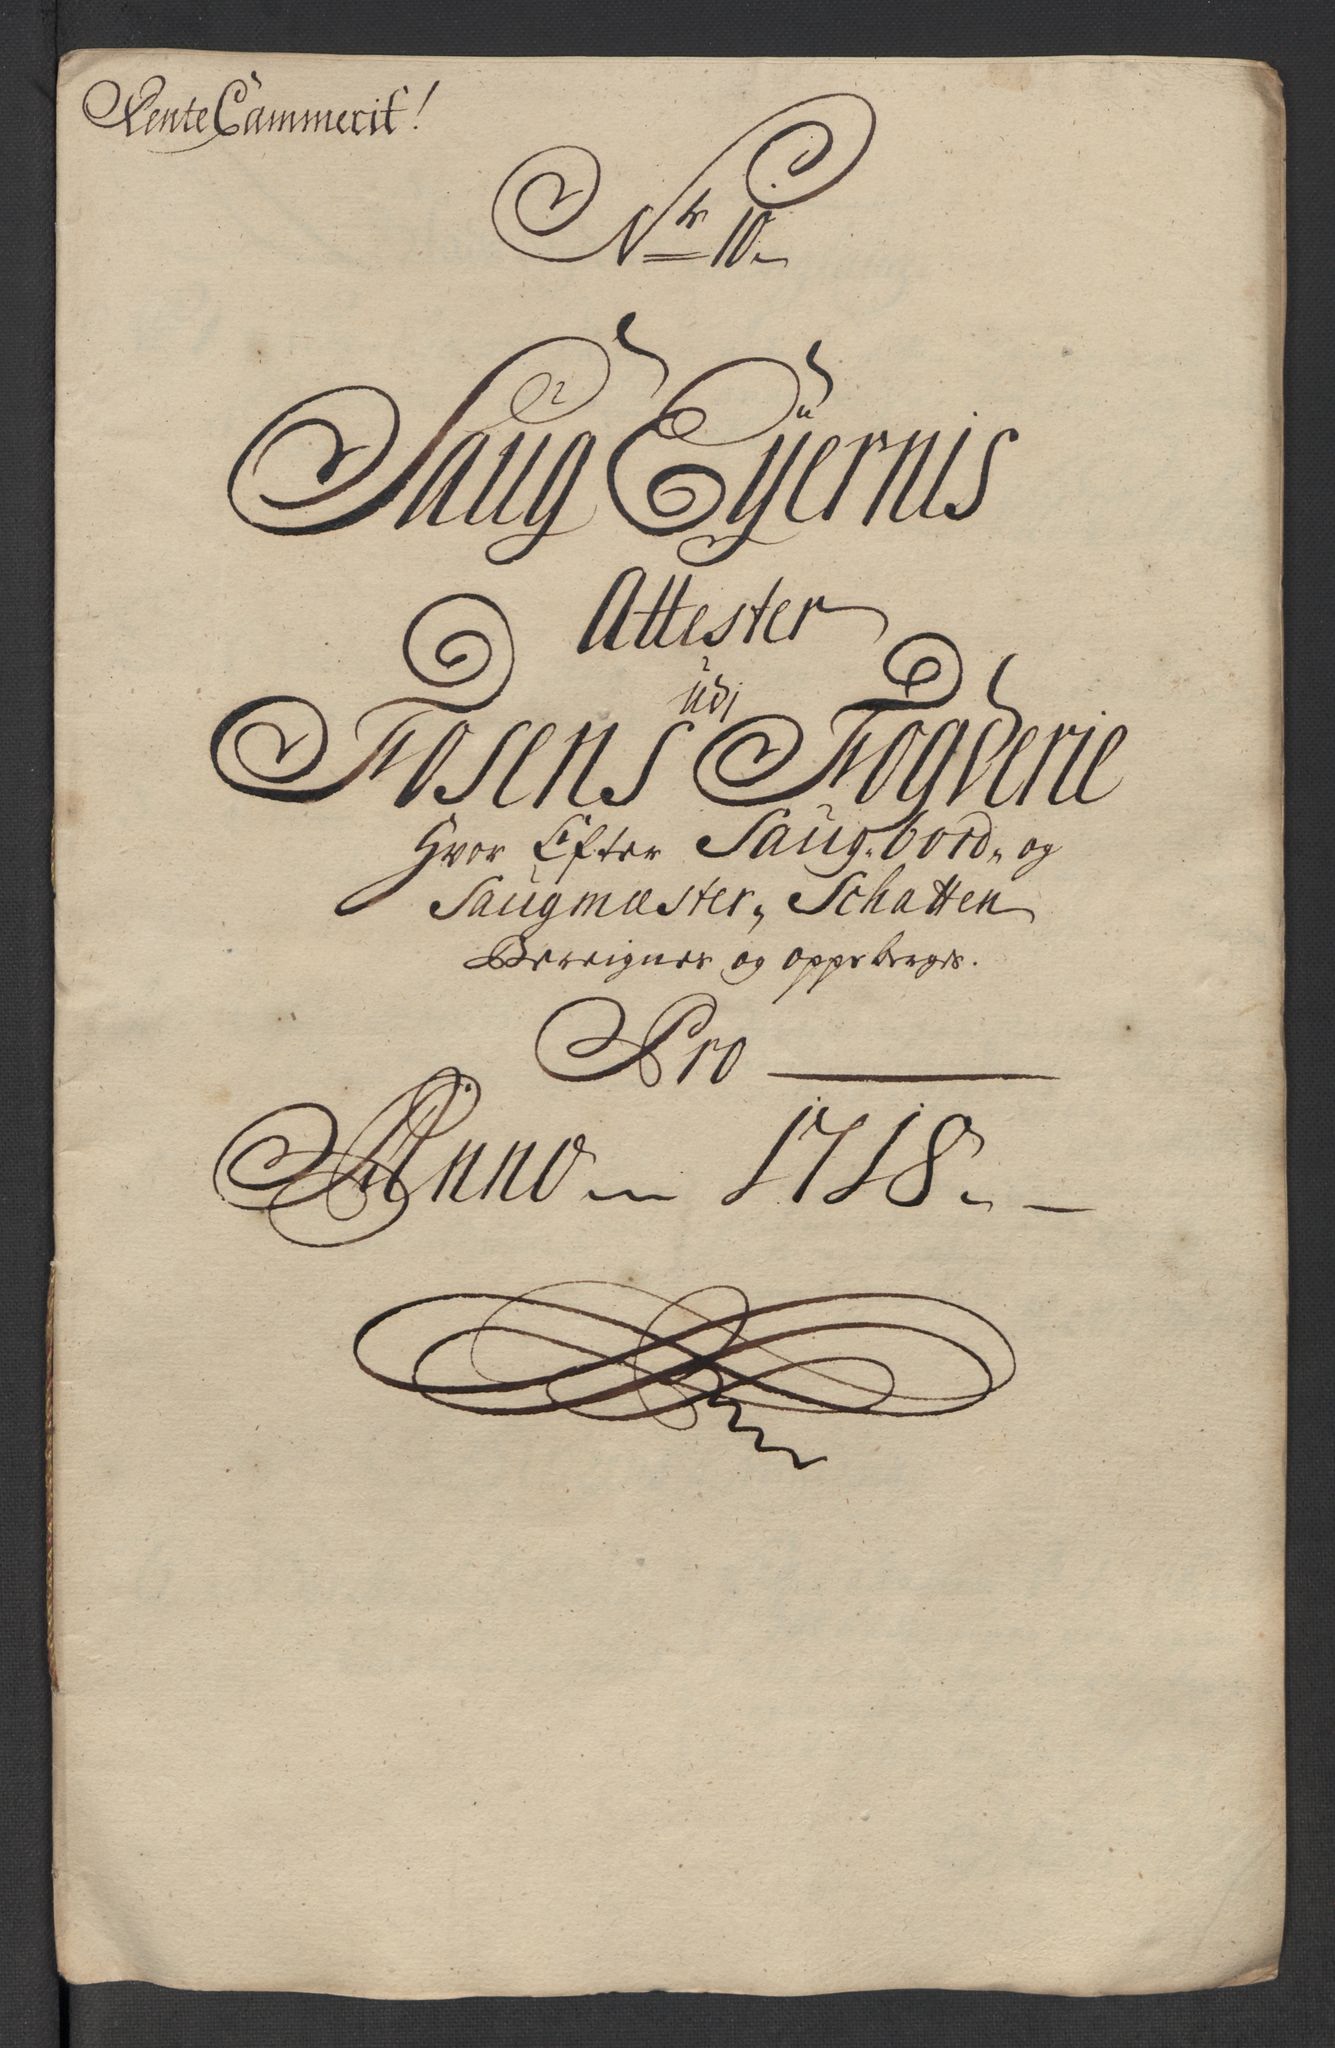 RenteCammerit!
Nr 10.
Saug Eÿernis
Attester
udj
Fosens Fogderie
Hvor Efter Saug-bord- og
Saugmæster, Schatten
Bereignes og oppeberges.
Pro
Anno 1718.